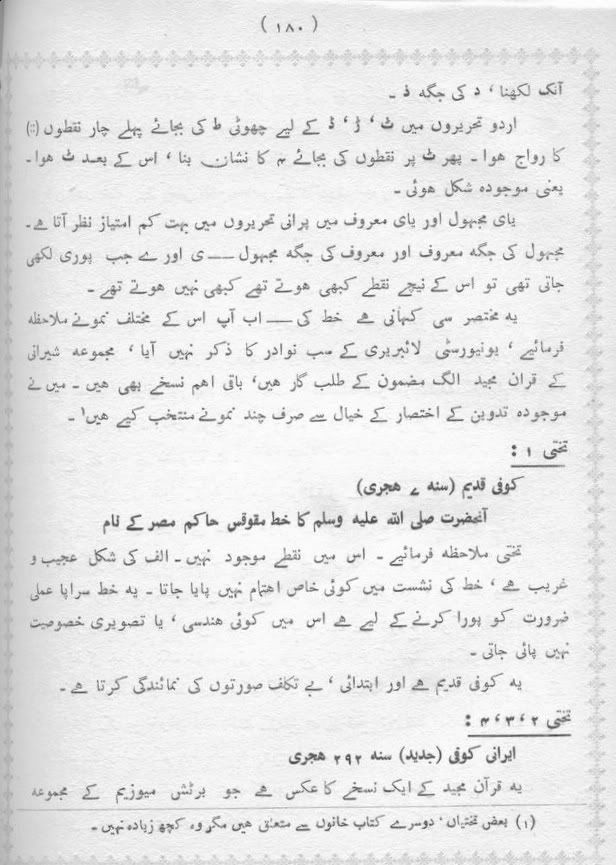 ( ۱۸۰ )
آنک لکھنا ، د کی جگہ ذ ۔
اردو تحریروں میں ٹ ، ڑ ، ڈ کے لیے چھوٹی ط کی بجائے پہلے چار نقطوں (::)
کا رواج ہوا ۔ پھر ٹ پر نقطوں کی بجائے ۴ کا نشان بنا ، اس کے بعد ٹ ہوا ۔
یعنی موجودہ شکل ہوئی ۔
یای مجہول اور یای معروف میں پرانی تحریروں میں بہت کم امتیاز نظر آتا ہے ۔
مجہول کی جگہ معروف اور معروف کی جگہ مجہول ــــ ی اور ے جب پوری لکھی
جاتی تھی تو اس کے نیچے نقطے کبھی ہوتے تھے کبھی نہیں ہوتے تھے ۔
یہ مختصر سی کہانی ہے خط کی ــــ اب آپ اس کے مختلف نمونے ملاحظہ
فرمائیے ، یونیورسٹی لائبریری کے سب نوادر کا ذکر نہیں آیا ، مجموعہ شیرانی
کے قران مجید الگ مضمون کے طلب گار ہیں، باقی اہم نسخے بھی ہیں ۔ میں نے
موجودہ تدوین کے اختصار کے خیال سے صرف چند نمونے منتخب کیے ہیں۱ ۔
تختی ۱ :
کوفی قدیم (سنہ ۷ ہجری)
آنحضرت صلی اللہ علیہ وسلم کا خط مقوقس حاکم مصر کے نام
تختی ملاحظہ فرمائیے ۔ اس میں نقطے موجود نہیں ۔ الف کی شکل عجیب و
غریب ہے ، خط کی نشست میں کوئی خاص اہتمام نہیں پایا جاتا ۔ یہ خط سراپا عملی
ضرورت کو پورا کرنے کے لیے ہے اس میں کوئی ہندسی ، یا تصویری خصوصیت
نہیں پائی جاتی ۔
یہ کوفی قدیم ہے اور ابتدائی ، بے تکلف صورتوں کی نمائندگی کرتا ہے ۔
تختی ۲ ، ۳ ، ۴ :
ایرانی کوفی (جدید) سنہ ۲۹۲ ہجری
یہ قرآن مجید کے ایک نسخے کا عکس ہے جو برٹش میوزیم کے مجموعہ
(۱) بعض تختیاں ، دوسرے کتاب خانوں سے متعلق ہیں مگر وہ کچھ زیادہ نہیں ۔